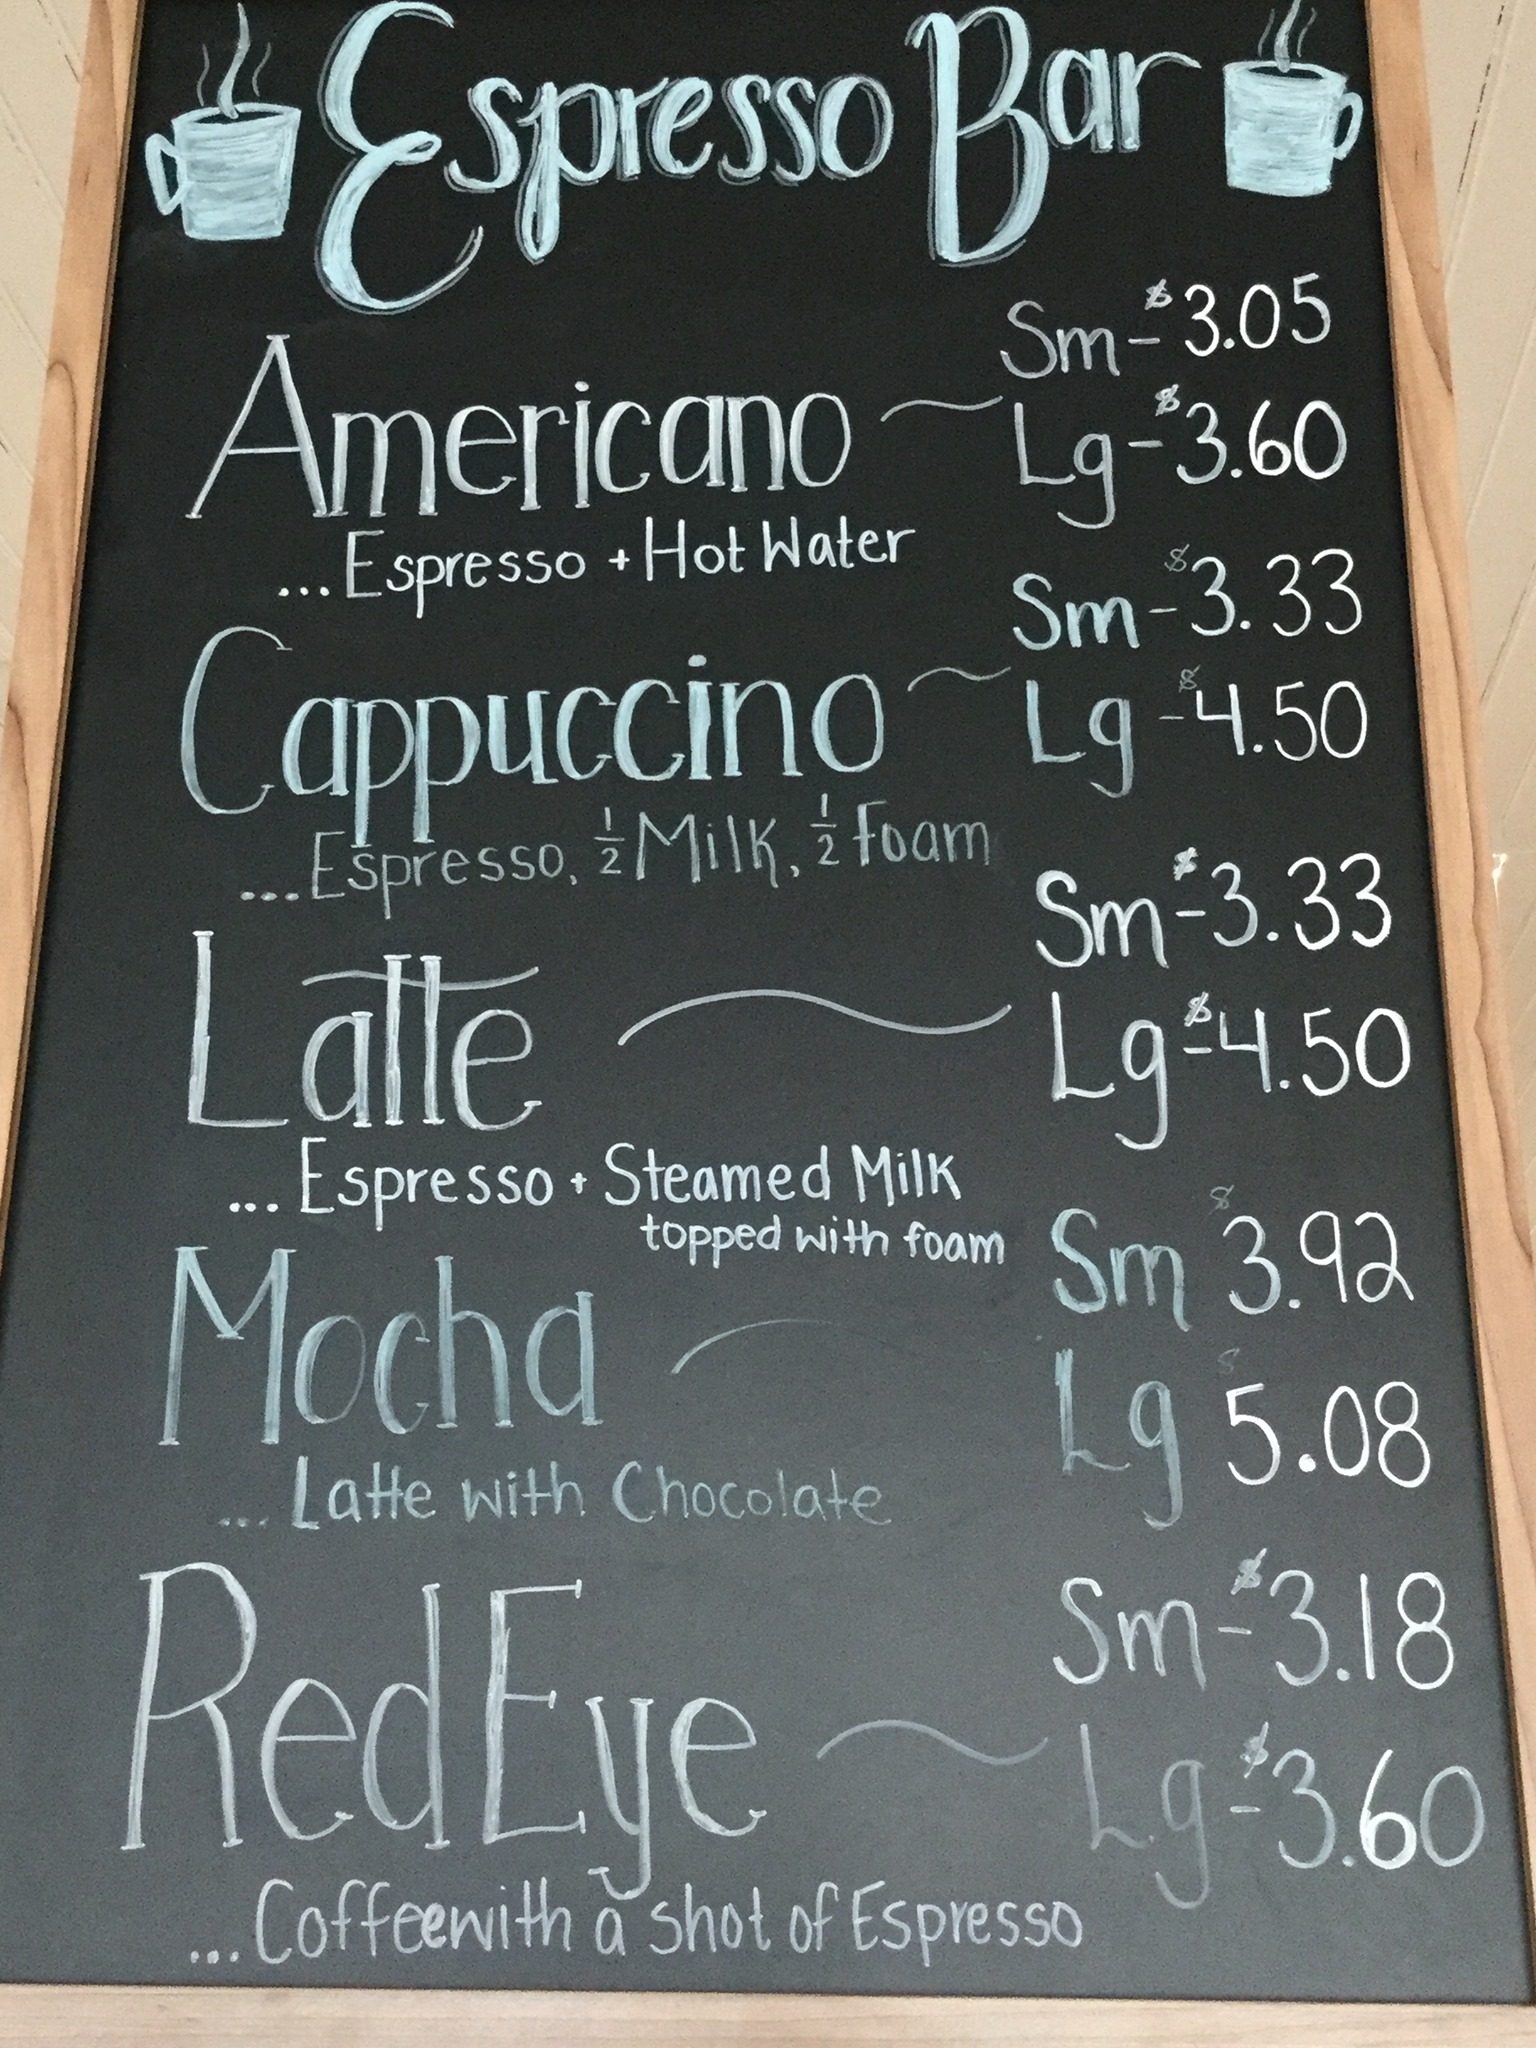 Espresso Bar
Sm - $3.05
Americano ~ Lg - $3.60
...Espresso + Hot Water
Sm - $3.33
Cappuccino ~ Lg - $4.50
...Espresso, 1/2 Milk, 1/2 foam
Sm - $3.33
Latte ~ Lg - $4.50
...Espresso + Steamed Milk
topped with foam
Sm $3.92
Mocha Lg $5.08
...Latte with Chocolate
Sm - $3.18
RedEye ~ Lg - $3.60
...Coffeewith a shot of Espresso